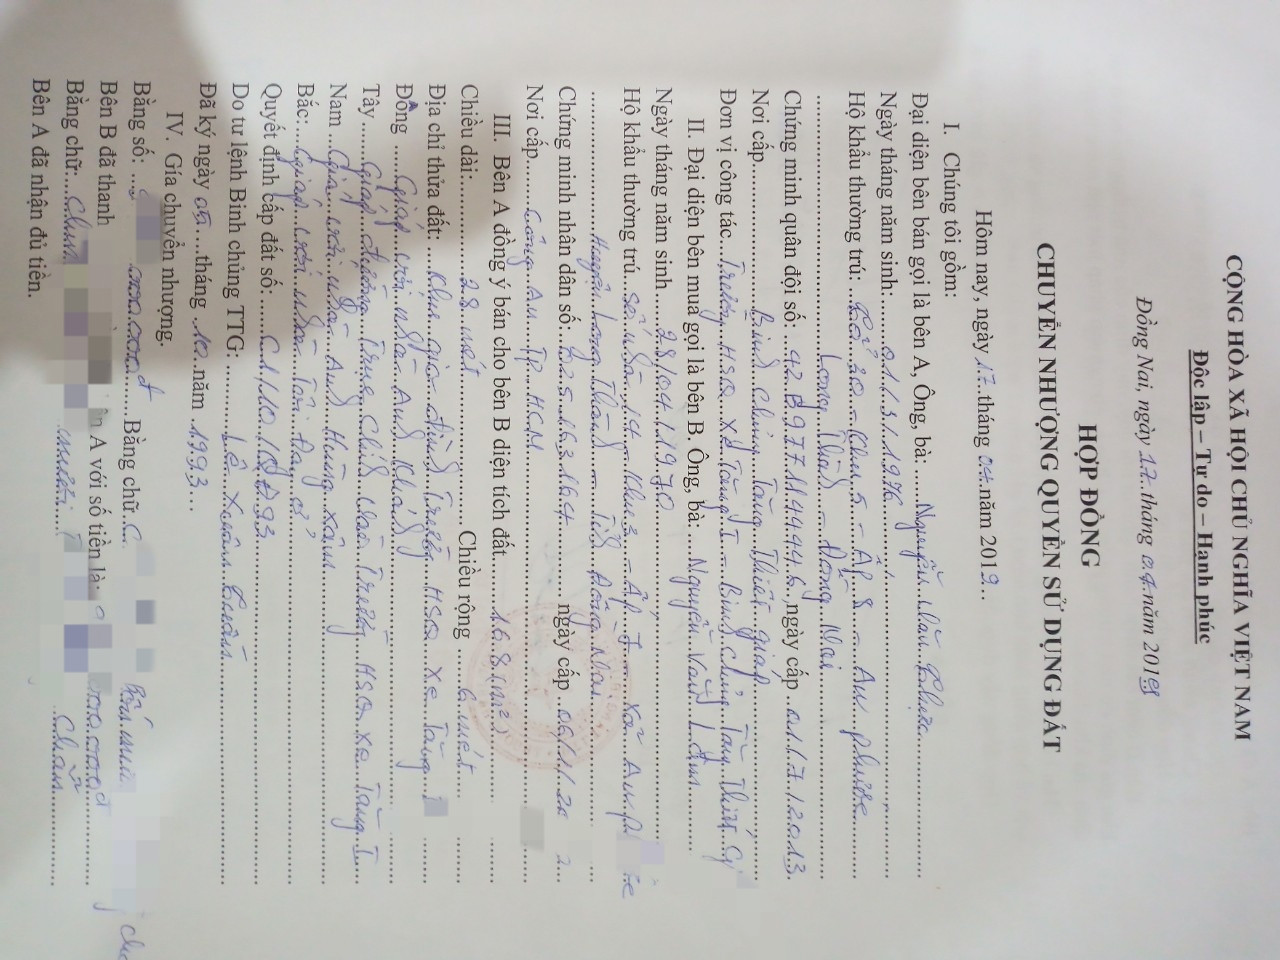 CỘNG HÒA XÃ HỘI CHỦ NGHĨA VIỆT NAM
Độc lập – Tự do – Hạnh phúc
Đồng Nai, ngày 17 tháng 04 năm 201
HỢP ĐỒNG
CHUYỂN NHƯỢNG QUYỀN SỬ DỤNG ĐẤT
Hôm nay, ngày 17 tháng 04 năm 2019
I. Chúng tôi gồm:
Đại diện bên bán gọi là bên A, Ông, bà: Nguyễn Văn
Ngày tháng năm sinh: 01/3/1976
Hộ khẩu thường trú: Tổ 30 – Khu 5 – Ấp 8 – An phước
Long Thành – Đồng Nai
Chứng minh quân đội số: 42B97714446, ngày cấp 01/7/2013
Nơi cấp Binh Chủng Tăng Thiết giáp
Đơn vị công tác Trường HSQ Xe Tăng I – Binh chủng Tăng Thiết G
II. Đại diện bên mua gọi là bên B. Ông, bà: Nguyễn Văn Lâm
Ngày tháng năm sinh 28/04/1970
Hộ khẩu thường trú Số nhà 14 – Khu 3 – Ấp 7 – xã An
Huyện Long Thành – Tỉnh Đồng Nai
Chứng minh nhân dân số: 025163164 ngày cấp 06/11/20
Nơi cấp Công An TP HCM
III. Bên A đồng ý bán cho bên B diện tích đất 168 (m²)
Chiều dài: 28 mét Chiều rộng 6 mét
Địa chỉ thửa đất: Khu gia đình Trường HSQ Xe Tăng
Đông Giáp với nhà Anh Khánh
Tây Giáp đường Trục Chính vào Trường HSQ xe Tăng I
Nam Giáp với nhà Anh Hùng Xâm
Bắc: Giáp với nhà Tôi đang ở
Quyết định cấp đất số: C1/10/QĐ93
Do tư lệnh Binh chủng TTG: Lê Xuân
Đã ký ngày 05 tháng 10 năm 1993
IV. Gía chuyển nhượng.
Bằng số: 000 000đ Bằng chữ
Bên B đã thanh n A với số tiền là: 000 000đ
Bằng chữ mươi chẵn
Bên A đã nhận đủ tiền.